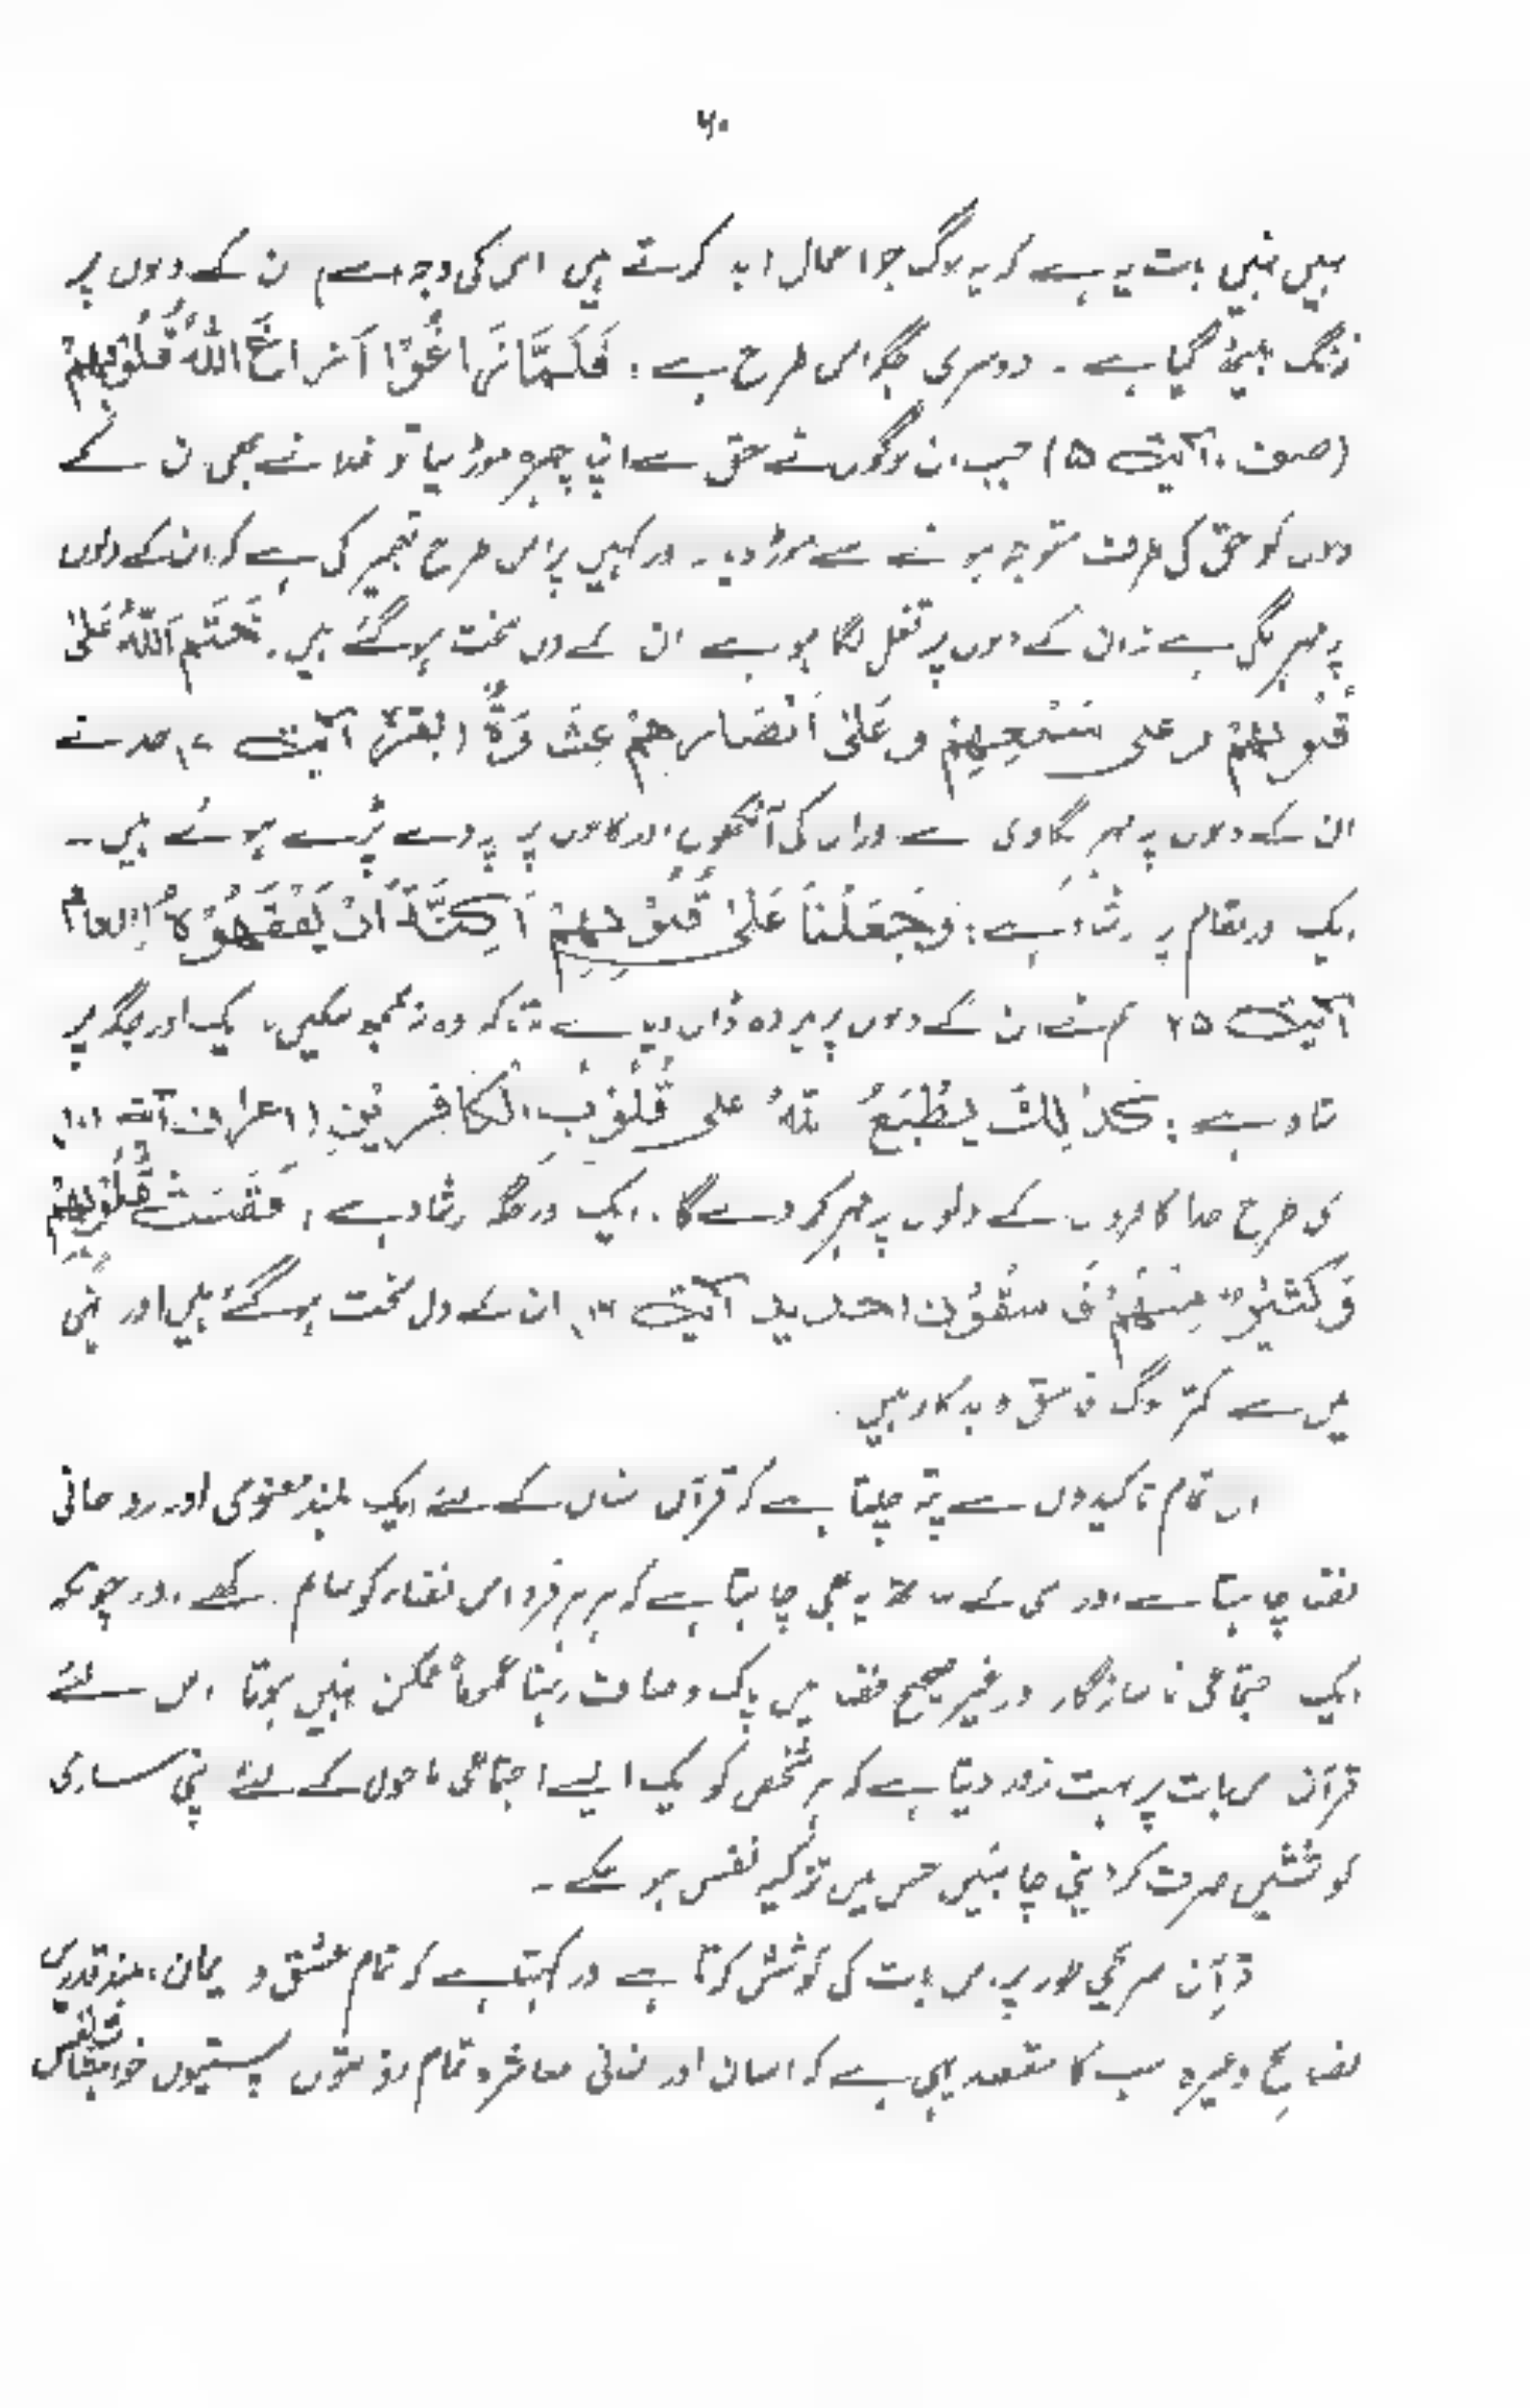 ۶۰
نہیں نہیں بات یہ ہے کہ یہ لوگ جو اعمال بد کرتے ہیں اس کی وجہ سے ان کے دلوں پر
زنگ بیٹھ گیا ہے ۔ دوسری جگہ اس طرح ہے : فَلَمَّا زَاغُوْا اَزَاغَ اللّٰهُ قُلُوْبَهُمْ
(صف ، آیت ۵) جب ان لوگوں نے حق سے اپنا چہرہ موڑ لیا تو خدا نے بھی ان کے
دلوں کو حق کی طرف متوجہ ہونے سے موڑ دیا ۔ اور کہیں پر اس طرح تعبیر کی ہے کہ ان کے دلوں
پر مہر لگی ہے ان کے دلوں پر قفل لگا ہوا ہے ان کے دل سخت ہو گئے ہیں ۔ خَتَمَ اللّٰهُ عَلٰی
قُلُوْبِهِمْ وَ عَلٰی سَمْعِهِمْ وَ عَلٰی اَبْصَارِهِمْ غِشَاوَةٌ (بقرۃ آیت ۷) خدا نے
ان کے دلوں پر مہر لگا دی ہے اور ان کی آنکھوں اور کانوں پر پردے پڑے ہوئے ہیں ۔
ایک اور مقام پر ارشاد ہے : وَجَعَلْنَا عَلٰی قُلُوْبِهِمْ اَكِنَّةً اَنْ يَفْقَهُوْهُ (انعام
آیت ۲۵) ہم نے ان کے دلوں پر پردہ ڈال دیا ہے تاکہ وہ نہ سمجھ سکیں ، ایک اور جگہ پر
ارشاد ہے : كَذٰلِكَ يَطْبَعُ اللّٰهُ عَلٰی قُلُوْبِ الْكَافِرِيْنِ (اعراف آیت ۱۰۱)
اسی طرح خدا کافروں کے دلوں پر مہر کر دے گا ۔ ایک اور جگہ ارشاد ہے ، فَقَسَتْ قُلُوْبُهُمْ
وَكَثِيْرٌ مِنْهُمْ فَاسِقُوْنَ (حدید آیت ۱۶) ان کے دل سخت ہو گئے ہیں اور انہی
میں سے اکثر لوگ فاسق و بدکار ہیں ۔
ان تمام تاکیدوں سے پتہ چلتا ہے کہ قرآن انسان کے لئے ایک بلند معنوی اور روحانی
فضا چاہتا ہے اور اسی کے ساتھ یہ بھی چاہتا ہے کہ ہر ہر فرد اس فضاء کو سالم رکھے ۔ اور چونکہ
ایک اجتماعی ناسازگار اور غیر صحیح فضا میں پاک و صاف رہنا عموماً ممکن نہیں ہوتا اس لئے
قرآن اس بات پر بہت زور دیتا ہے کہ ہر شخص کو ایک ایسے اجتماعی ماحول کے لئے اپنی ساری
کوششیں صرف کر دینی چاہئیں جس میں تزکیہ نفس ہو سکے ۔
قرآن صریحی طور پر اس بات کی کوشش کرتا ہے اور کہتا ہے کہ تمام عشق و ایمان ، بلند قدریں
نصایح وغیرہ سب کا مقصد یہی ہے کہ انسان اور انسانی معاشرہ تمام پستیوں خواہشات نفس